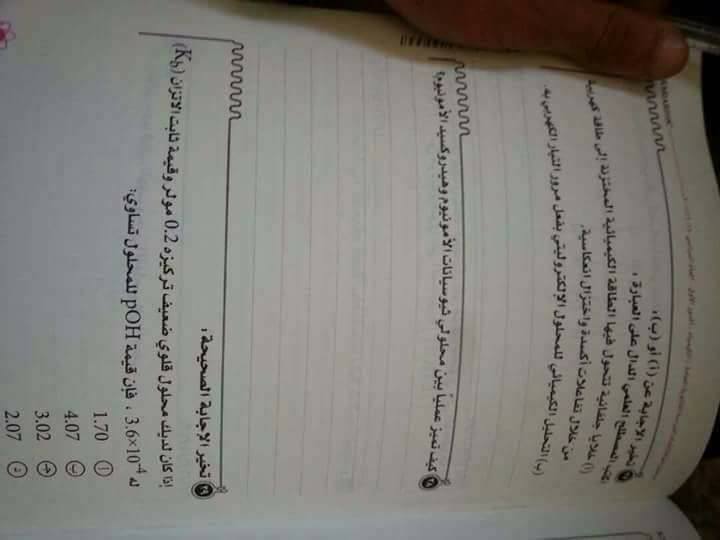 تخير الإجابة عن (أ) أو (ب):
اكتب المصطلح العلمي الدال على العبارة:
(أ) خلايا جلفانية تتحول فيها الطاقة الكيميائية المختزنة إلى طاقة كهربية
من خلال تفاعلات أكسدة واختزال انعكاسية.
(ب) التحليل الكيميائي للمحلول الإلكتروليتي بفعل مرور التيار الكهربي به.
كيف تميز عمليا بين محلولي ثيوسيانات الأمونيوم وهيدروكسيد الأمونيوم؟
تخير الإجابة الصحيحة:
إذا كان لديك محلول قلوي ضعيف تركيزه 0.2 مولر وقيمة ثابت الاتزان (Kb)
له 3.6×10⁻⁴ ، فإن قيمة pOH للمحلول تساوي:
أ 1.70
ب 4.07
ج 3.02
د 2.07